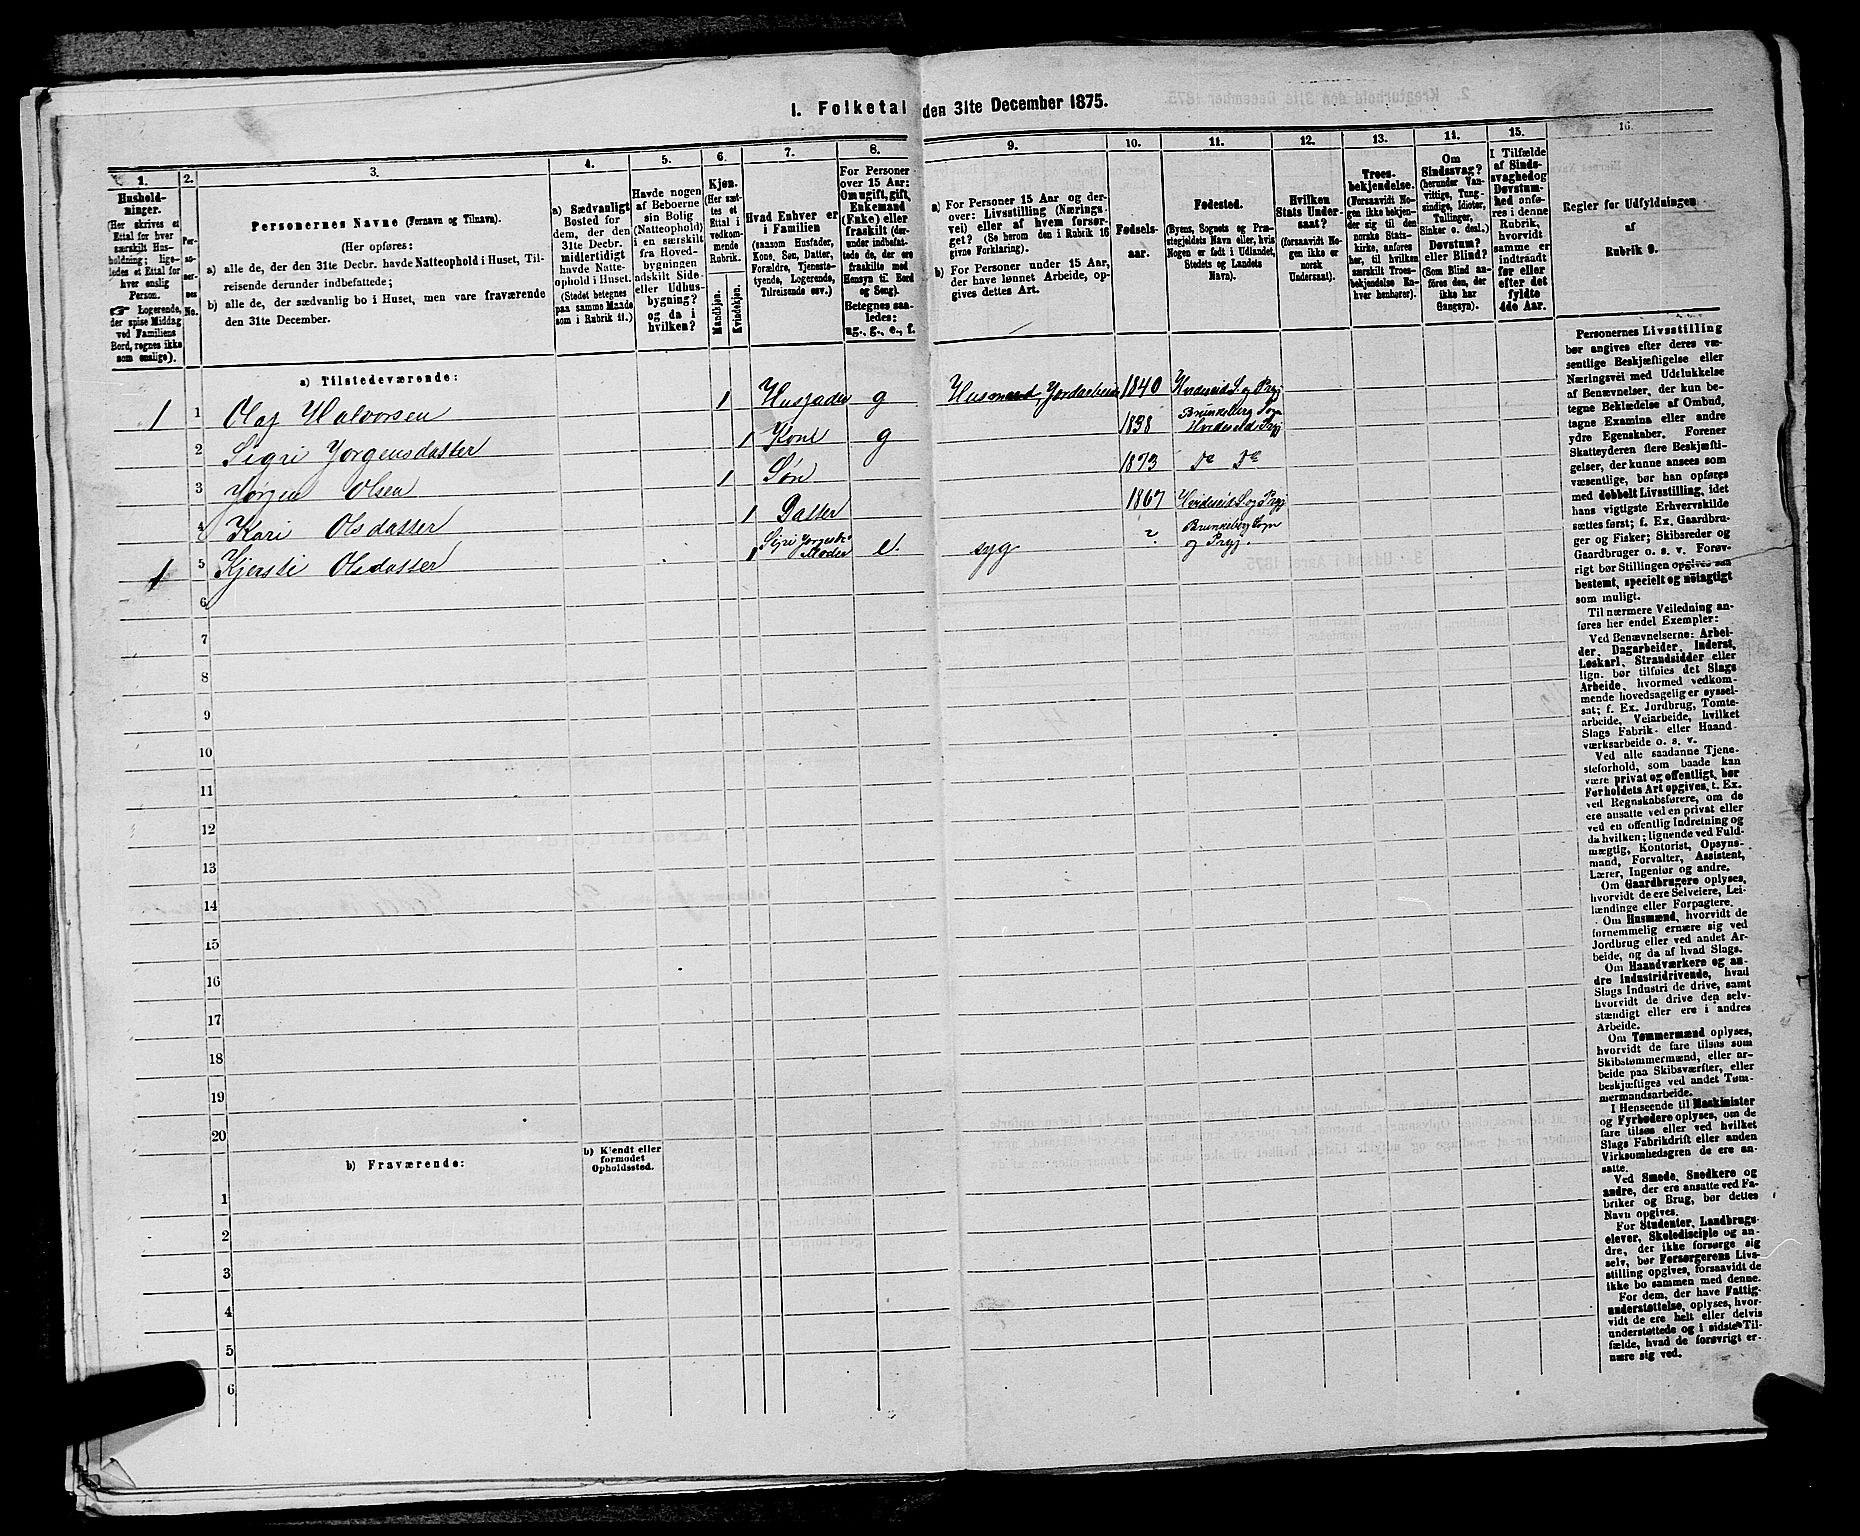 I. Folketal den 31te December 1875.
1.
2.
3.
4.
5.
6.
7.
8.
9.
10.
11.
12.
13.
14.
15.
16.
Hushold-
ninger.
(Her skrives et
Ettal for hver
særskilt Hus-
holdning; lige-
ledes et Ettal for
hver enslig
Person.
☞ Logerende,
der spise Middag
ved Familiens
Bord, regnes ikke
som enslige).
Per-
so-
ner-
nes
No.
Personernes Navne (Fornavn og Tilnavn).
(Her opføres:
a) alle de, der den 31te Decbr. havde Natteophold i Huset, Til-
reisende derunder indbefattede;
b) alle de, der sædvanlig bo i Huset, men vare fraværende
den 31te December.
a) Sædvanligt
Bosted for
dem, der den
31te Decbr.
midlertidigt
havde Natte-
ophold i Huset.
(Stedet betegnes
paa samme Maade
som i Rubrik 11.)
Havde nogen
af Beboerne
sin Bolig
(Natteophold)
i en særskilt
fra Hoved-
bygningen
adskilt Side-
eller Udhus-
bygning?
og da i
hvilken?
Kjøn.
(Her sæt-
tes et
Ettal i
vedkom-
mende
Rubrik.
Mandkjøn.
Kvindekjøn.
Hvad Enhver er
i Familien
(saasom Husfader,
Kone, Søn, Datter,
Forældre, Tjeneste-
tyende, Logerende,
Tilreisende osv.)
For Personer
over 15 Aar:
Om ugift, gift,
Enkemand
(Enke) eller
fraskilt (der-
under indbefat-
tede de, der ere
fraskilte med
Hensyn til Bord
og Seng).
Betegnes saa-
ledes:
ug., g., e., f.
a) For Personer 15 Aar og der-
over: Livsstilling (Nærings-
vei) eller af hvem forsør-
get? (Se herom den i Rubrik 16
givne Forklaring).
b) For Personer under 15 Aar,
der have lønnet Arbeide, op-
gives dettes Art.
Fødsels-
aar.
Fødested.
(Byens, Sognets og Præ-
stegjeldets Navn eller, hvis
Nogen er født i Udlandet,
Stedets og Landets
Navn).
Hvilken
Stats Under-
saat?
(forsaavidt No-
gen ikke er
norsk
Undersaat).
Troes-
bekjendelse.
(Forsaavidt No-
gen ikke bekjen-
der sig til den
norske Stats-
kirke, anføres
her, til hvilken
særskilt Troes-
bekjendelse En-
hver henhører).
Om
Sindssvag?
(herunder Van-
vittige, Tung-
sindige, Idioter,
Tullinger,
Sinker o. desl.)
Døvstum?
eller Blind?
(Som Blind an-
føres den, der
ikke har
Gangsyn).
I Tilfælde
af Sinds-
svaghed og
Døvstum-
hed anfø-
res i denne
Rubrik,
hvorvidt
samme er
indtraadt
før eller
efter det
fyldte
4de Aar.
Regler for Udfyldningen
af
Rubrik 9.
a) Tilstedeværende:
1 1 Olaf Halvorsen 1 Husfader g Husmand 1840
2 Sigri Jørgensdatter 1 Kone g 1838
3 Jørgen Olsen 1 Søn 1873 Do Do
4 Kari Olsdatter 1 Datter 1867
1 5 Kjersti Olsdatter 1 Moder e. syg ? Brunkeberg Sogn
og Præg.
6
7
8
9
10
11
12
13
14
15
16
17
18
19
20
b) Fraværende:
b) Kjendt eller
formodet
Opholdssted.
1
2
3
4
5
6
Personernes Livsstilling
bør angives efter deres væ-
sentlige Beskjæftigelse eller
Næringsvei med Udelukkelse
af Benævnelser, der kun be-
tegne Beklædelse af Ombud,
tagne Examina eller andre
ydre Egenskaber. Forener
Skatteyderen flere Beskjæfti-
gelser, der kunne ansees som
væsentlige, bør han opføres
med dobbelt Livsstilling, idet
hans vigtigste Erhvervskilde
sættes først; f. Ex. Gaardbru-
ger og Fisker; Skibsreder og
Gaardbruger o. s. v. Forøv-
rigt bør Stillingen opgives saa
bestemt, specielt og nøiagtigt
som muligt.
Til nærmere Veiledning an-
føres her endel Exempler:
Ved Benævnelserne: Arbei-
der, Dagarbeider, Inderst,
Løskarl, Strandsidder eller
lign. bør tilføies det Slags
Arbeide, hvormed vedkom-
mende hovedsagelig er syssel-
sat; f. Ex. Jordbrug, Tomte-
arbeide, Veiarbeide, hvilket
Slags Fabrik- eller Haand-
værksarbeide o. s. v.
Ved alle saadanne Tjene-
steforhold, som baade kan
være privat og offentligt, bør
Forholdets Art opgives, t. Ex.
ved Regnskabsførere, om de
ere ansatte ved en privat eller
ved en offentlig Indretning og
da hvilken; lignende ved Fuld-
mægtig, Kontorist, Opsyns-
mand, Forvalter, Assistent,
Lærer, Ingeniør og andre.
Om Gaardbrugere oplyses,
hvorvidt de ere Selveiere, Lei-
lændinge eller Forpagtere.
Om Husmænd, hvorvidt de
fornemmelig ernære sig ved
Jordbrug eller ved andet Ar-
beide, og da af hvad Slags.
Om Haandværkere og an-
dre Industridrivende, hvad
Slags Industri de drive, samt
hvorvidt de drive den selv-
stændigt eller ere i andres
Arbeide.
Om Tømmermænd oplyses,
hvorvidt de fare tilsøs som
Skibstømmermænd, eller ar-
beide paa Skibsværfter, eller
beskjæftiges ved andet Tøm-
mermandsarbeide.
I Henseende til Maskinister
og Fyrbødere oplyses, om de
fare tilsøs eller ved hvilket
Slags Fabrikdrift eller anden
Virksomhedsgren de ere an-
satte.
Ved Smede, Snedkere og
andre, der ere ansatte ved Fa-
briker og Brug, bør dettes
Navn opgives.
For Studenter, Landbrugs-
elever, Skoledisciple og an-
dre, der ikke forsørge sig
selv, bør Forsørgerens Livs-
stilling opgives, forsaavidt de
ikke bo sammen med denne.
For dem, der have Fattig-
understøttelse, oplyses, hvor-
vidt de ere helt eller delvis
understøttede og i sidste Til-
fælde, hvad de forøvrigt er-
nære sig ved.